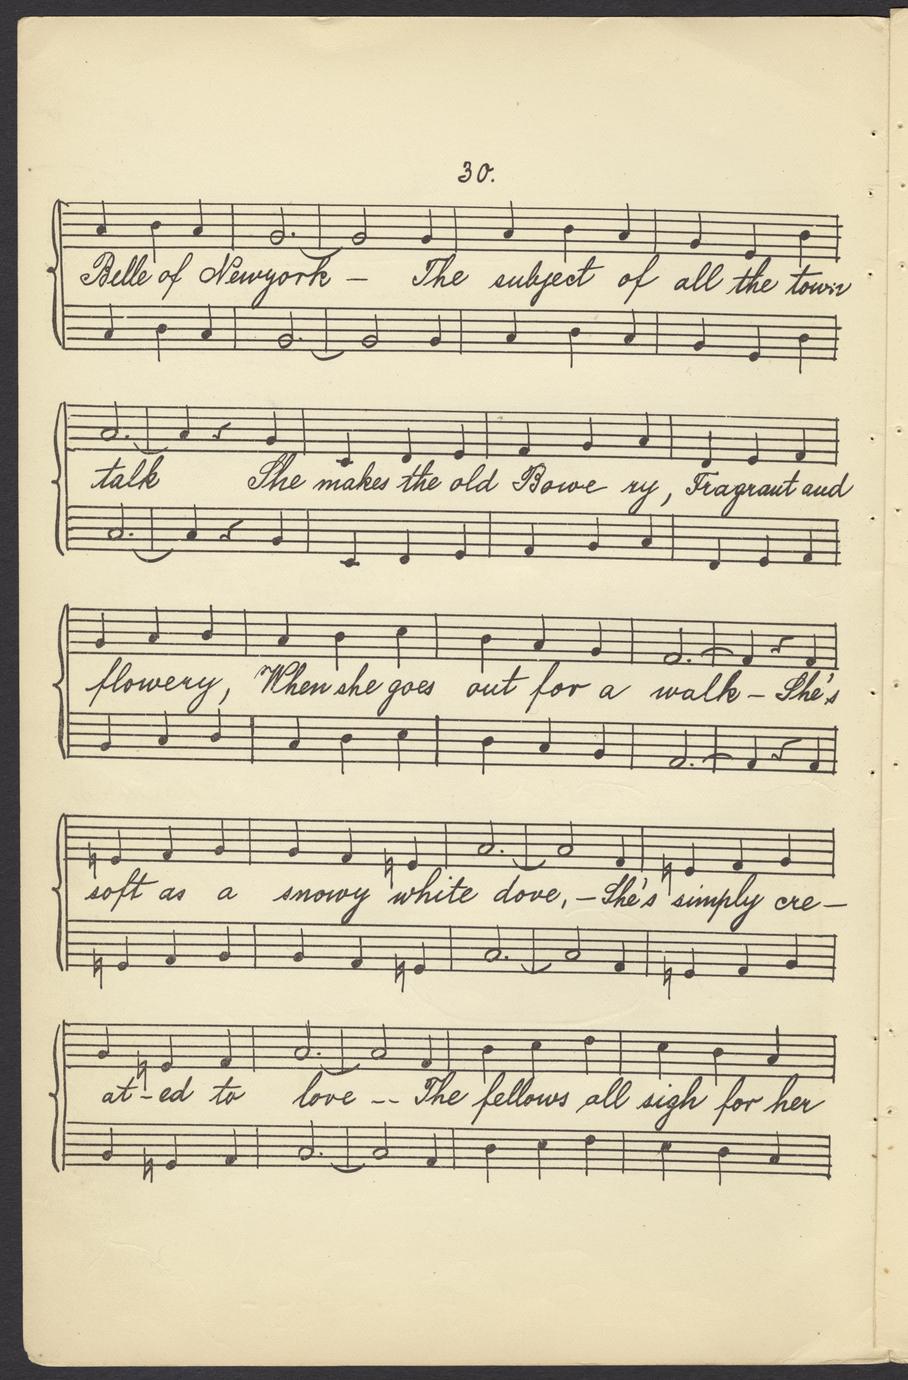 30.
Belle of Newyork – The subject of all the town
talk She makes the old Bowe ry, Fragrant and
flowery, When she goes out for a walk – She's
soft as a snowy white dove, – She's simply cre –
at – ed to love -- The fellows all sigh for her